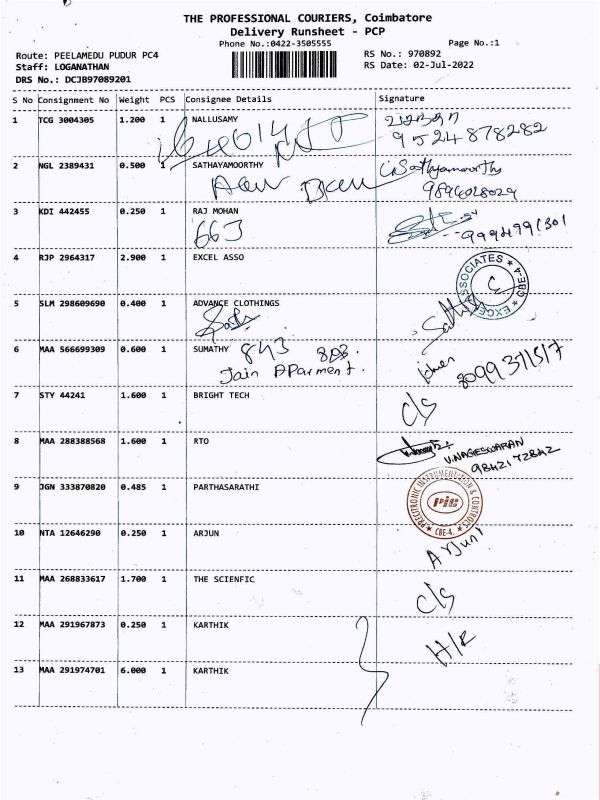 THE PROFESSIONAL COURIERS, Coimbatore
Delivery Runsheet - PCP
Phone No.:0422-3505555
Page No.:1
Route: PEELAMEDU PUDUR PC4
RS No.: 970892
Staff: LOGANATHAN
RS Date: 02-Jul-2022
DRS No.: DCJB97089201
S No Consignment No Weight PCS Consignee Details Signature
1 TCG 3004305 1.200 1 NALLUSAMY
9524878282
2 NGL 2389431 0.500 1 SATHAYAMOORTHY
Sathyamoorthy
9894028029
3 KDI 442455 0.250 1 RAJ MOHAN
663
4 RJP 2964317 2.900 1 EXCEL ASSO
EXCEL ASSOCIATES ★ CBE-4 ★
5 SLM 298609690 0.400 1 ADVANCE CLOTHINGS
6 MAA 566699309 0.600 1 SUMATHY 843
Jain APartment.
7 STY 44241 1.600 1 BRIGHT TECH
C/S
8 MAA 288388568 1.600 1 RTO
V.NAGESWARAN
9842172842
9 JGN 333870820 0.485 1 PARTHASARATHI
PRECITRONIC INSTRUMENTATION & CONTROLS
PIC
★ CBE-4. ★
10 NTA 12646290 0.250 1 ARJUN
Arjun
11 MAA 268833617 1.700 1 THE SCIENFIC
C/S
12 MAA 291967873 0.250 1 KARTHIK
H/R
13 MAA 291974701 6.000 1 KARTHIK